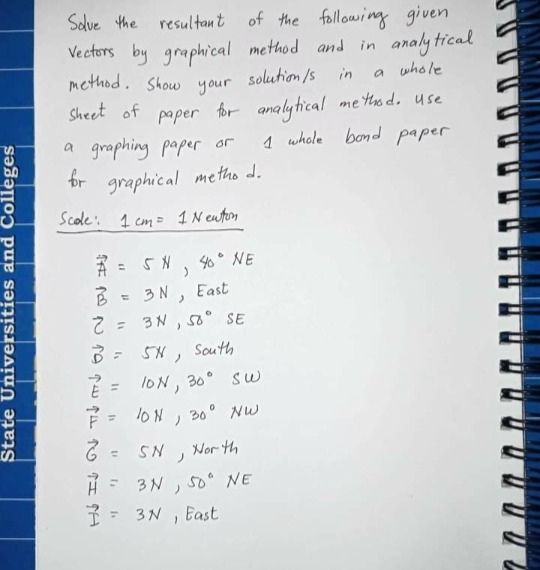 Solve the resultant of the following given
Vectors by graphical method and in analytical
method. Show your solution/s in a whole
sheet of paper for analytical method. Use
a graphing paper or 1 whole bond paper
for graphical method.
Scale: 1 cm = 1 Newton
A⃗ = 5 N, 40° NE
B⃗ = 3 N, East
C⃗ = 3 N, 50° SE
D⃗ = 5 N, South
E⃗ = 10 N, 30° SW
F⃗ = 10 N, 30° NW
G⃗ = 5 N, North
H⃗ = 3 N, 50° NE
I⃗ = 3 N, East
State Universities and Colleges